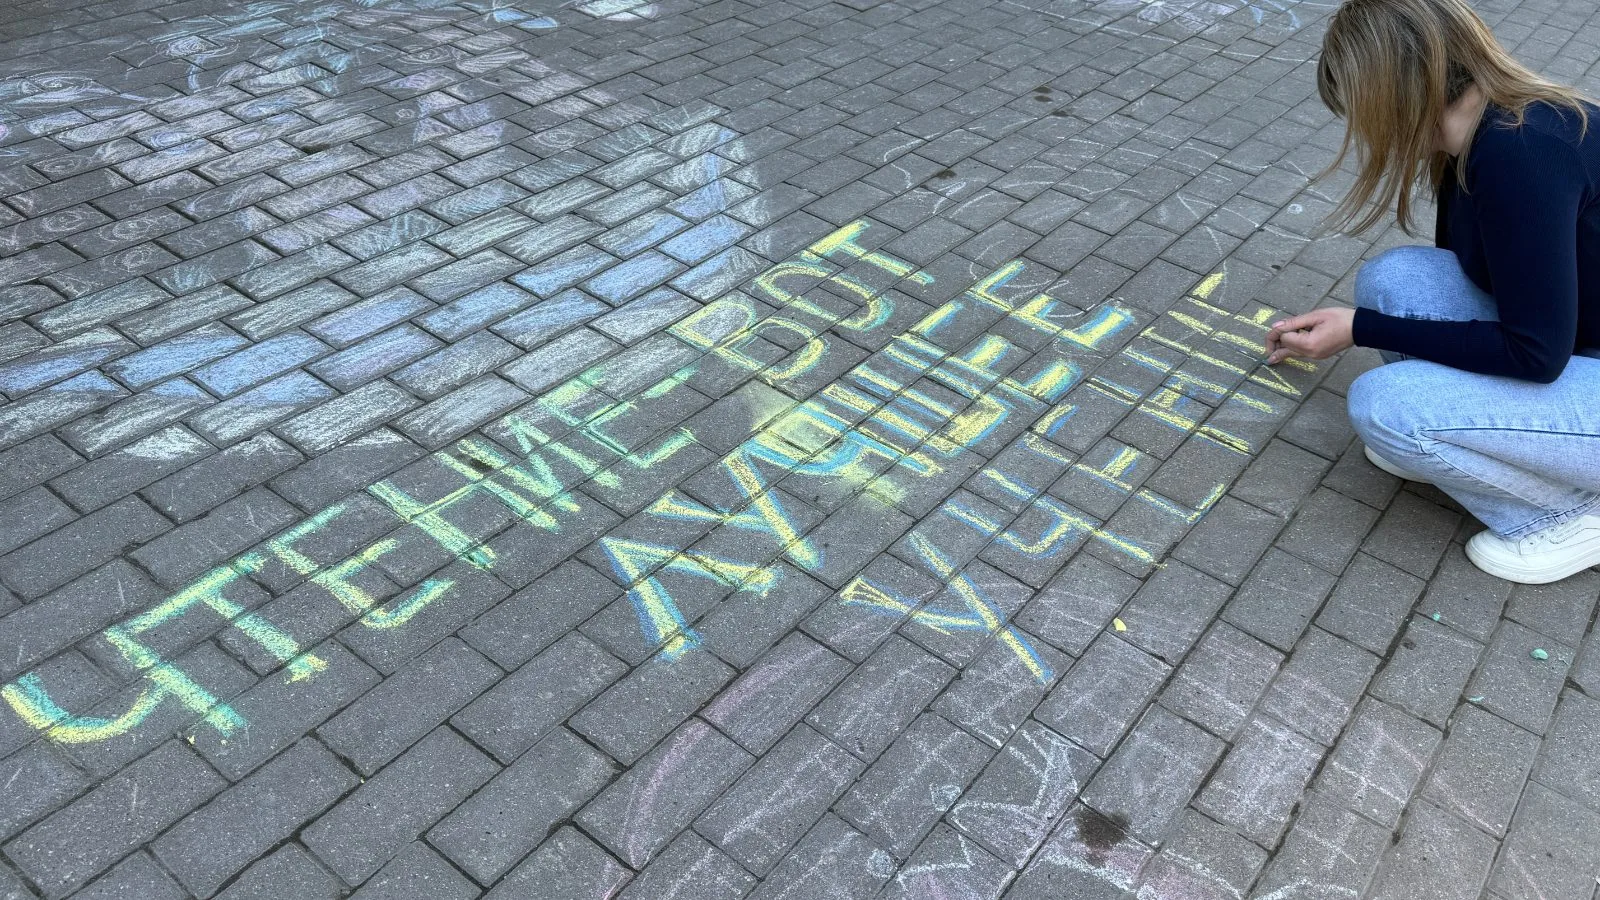 ЧТЕНИЕ ВОТ
ЛУЧШЕЕ
УЧЕНИЕ